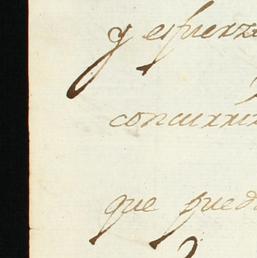 y esfuerzo
concurrir
que pued